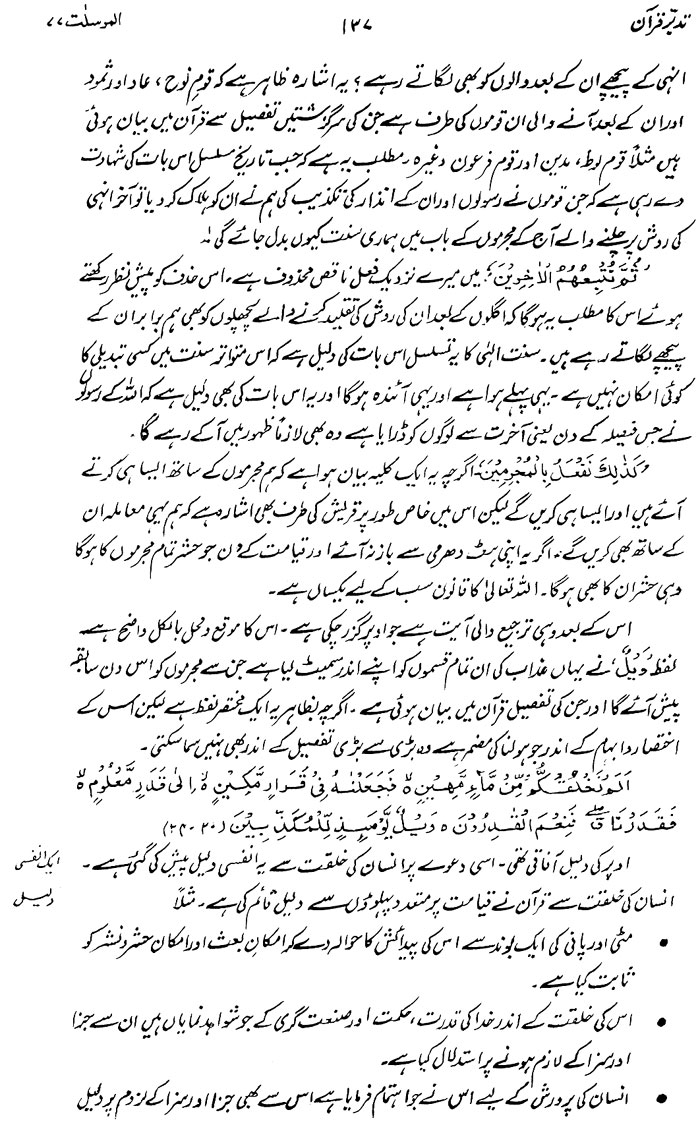 تدبرِ قرآن
۱۳۷
المرسلٰت ۷۷
انہی کے پیچھے ان کے بعد والوں کو بھی لگاتے رہے؟ یہ اشارہ ظاہر ہے کہ قوم نوح، عاد اور ثمود
اور ان کے بعد آنے والی ان قوموں کی طرف ہے جن کی سرگزشتیں تفصیل سے قرآن میں بیان ہوئی
ہیں مثلاً قوم لوط، مدین اور قوم فرعون وغیرہ۔ مطلب یہ ہے کہ جب تاریخ مسلسل اس بات کی شہادت
دے رہی ہے کہ جن قوموں نے رسولوں اور ان کے انذار کی تکذیب کی ہم نے ان کو ہلاک کر دیا تو آخر انہی
کی روش پر چلنے والے آج کے مجرموں کے باب میں ہماری سنت کیوں بدل جائے گی!
’ثُمَّ نُتْبِعُهُمُ الْاٰخِرِيْنَ‘ میں میرے نزدیک فعل ناقص محذوف ہے۔ اس حذف کو پیش نظر رکھتے
ہوئے اس کا مطلب یہ ہوگا کہ اگلوں کے بعد ان کی روش کی تقلید کرنے والے پچھلوں کو بھی ہم برابر ان کے
پیچھے لگاتے رہے ہیں۔ سنت الٰہی کا یہ تسلسل اس بات کی دلیل ہے کہ اس متواتر سنت میں کسی تبدیلی کا
کوئی امکان نہیں ہے۔ یہی پہلے ہوا ہے اور یہی آئندہ ہوگا اور یہ اس بات کی بھی دلیل ہے کہ اللہ کے رسولوں
نے جس فیصلہ کے دن یعنی آخرت سے لوگوں کو ڈرایا ہے وہ بھی لازماً ظہور میں آکے رہے گا۔
’كَذٰلِكَ نَفْعَلُ بِالْمُجْرِمِيْنَ‘ اگرچہ یہ ایک کلیہ بیان ہوا ہے کہ ہم مجرموں کے ساتھ ایسا ہی کرتے
آئے ہیں اور ایسا ہی کریں گے لیکن اس میں خاص طور پر قریش کی طرف بھی اشارہ ہے کہ ہم یہی معاملہ ان
کے ساتھ بھی کریں گے، اگر یہ اپنی ہٹ دھرمی سے باز نہ آئے اور قیامت کے دن جو حشر تمام مجرموں کا ہوگا
وہی حشر ان کا بھی ہوگا۔ اللہ تعالیٰ کا قانون سب کے لیے یکساں ہے۔
اس کے بعد وہی ترجیع والی آیت ہے جو اوپر گزر چکی ہے۔ اس کا موقع و محل بالکل واضح ہے۔
لفظ ’وَيْلٌ‘ نے یہاں عذاب کی ان تمام قسموں کو اپنے اندر سمیٹ لیا ہے جن سے مجرموں کو اس دن سابقہ
پیش آئے گا اور جن کی تفصیل قرآن میں بیان ہوئی ہے۔ اگرچہ بظاہر یہ ایک مختصر لفظ ہے لیکن اس کے
اختصار و ابہام کے اندر جو ہولناکی مضمر ہے وہ بڑی سے بڑی تفصیل کے اندر بھی نہیں سما سکتی۔
اَلَمْ نَخْلُقْكُّمْ مِّنْ مَّآءٍ مَّهِيْنٍ ہ فَجَعَلْنٰهُ فِيْ قَرَارٍ مَّكِيْنٍ ہ اِلٰى قَدَرٍ مَّعْلُوْمٍ ہ
فَقَدَرْنَا ۖ فَنِعْمَ الْقٰدِرُوْنَ ہ وَيْلٌ يَّوْمَئِذٍ لِّلْمُكَذِّبِيْنَ (۲۰-۲۴)
اوپر کی دلیل آفاقی تھی۔ اسی دعوے پر انسان کی خلقت سے یہ انفسی دلیل پیش کی گئی ہے۔
ایک انفسی
انسان کی خلقت سے قرآن نے قیامت پر متعدد پہلوؤں سے دلیل قائم کی ہے۔ مثلاً
دلیل
• مٹی اور پانی کی ایک بوند سے اس کی پیدائش کا حوالہ دے کر امکانِ بعث اور امکان حشر و نشر کو
ثابت کیا ہے۔
• اس کی خلقت کے اندر خدا کی قدرت، حکمت اور صنعت گری کے جو شواہد نمایاں ہیں ان سے جزا
اور سزا کے لازم ہونے پر استدلال کیا ہے۔
• انسان کی پرورش کے لیے اس نے جو اہتمام فرمایا ہے اس سے بھی جزا اور سزا کے لزوم پر دلیل